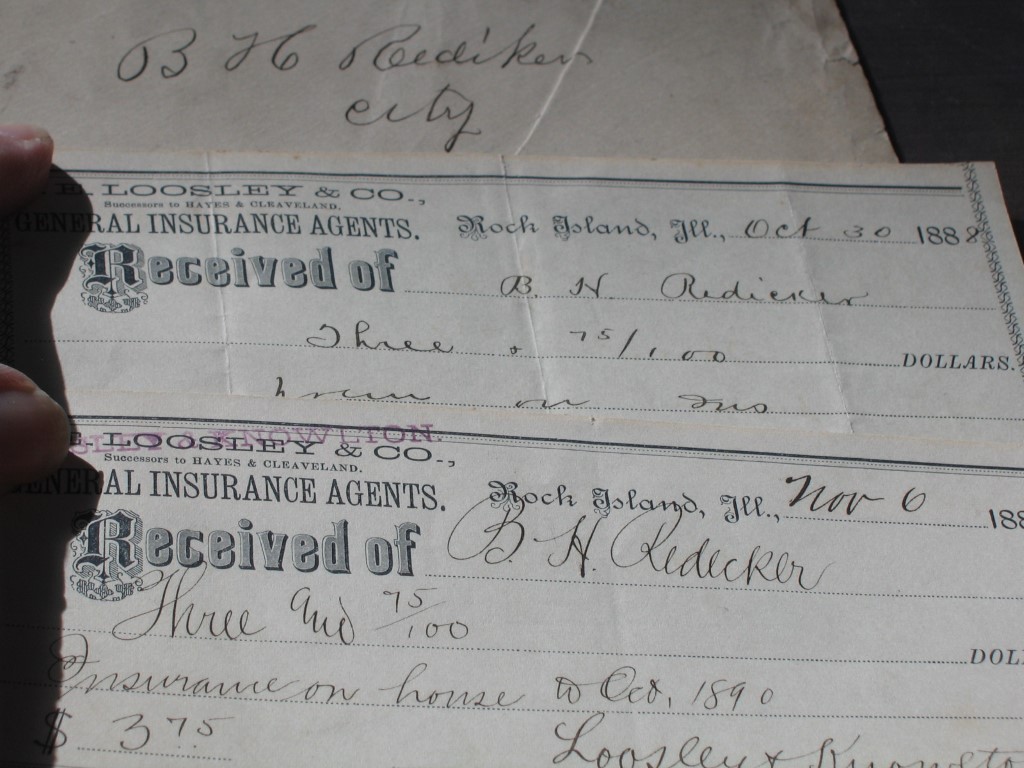 B H Rediker
city
E. LOOSLEY & CO.,
Successors to HAYES & CLEAVELAND,
GENERAL INSURANCE AGENTS.
Rock Island, Ill., Oct 30 1888
Received of B. H. Redicker
Three & 75/100 DOLLARS.
on Ins
KNOWLTON.
E. LOOSLEY & CO.,
Successors to HAYES & CLEAVELAND.
GENERAL INSURANCE AGENTS.
Rock Island, Ill., Nov 6 188
Received of B. H. Redecker
Three and 75/100 DOLL
Insurance on house to Oct, 1890
$ 3 75
Loosley & Knowlto